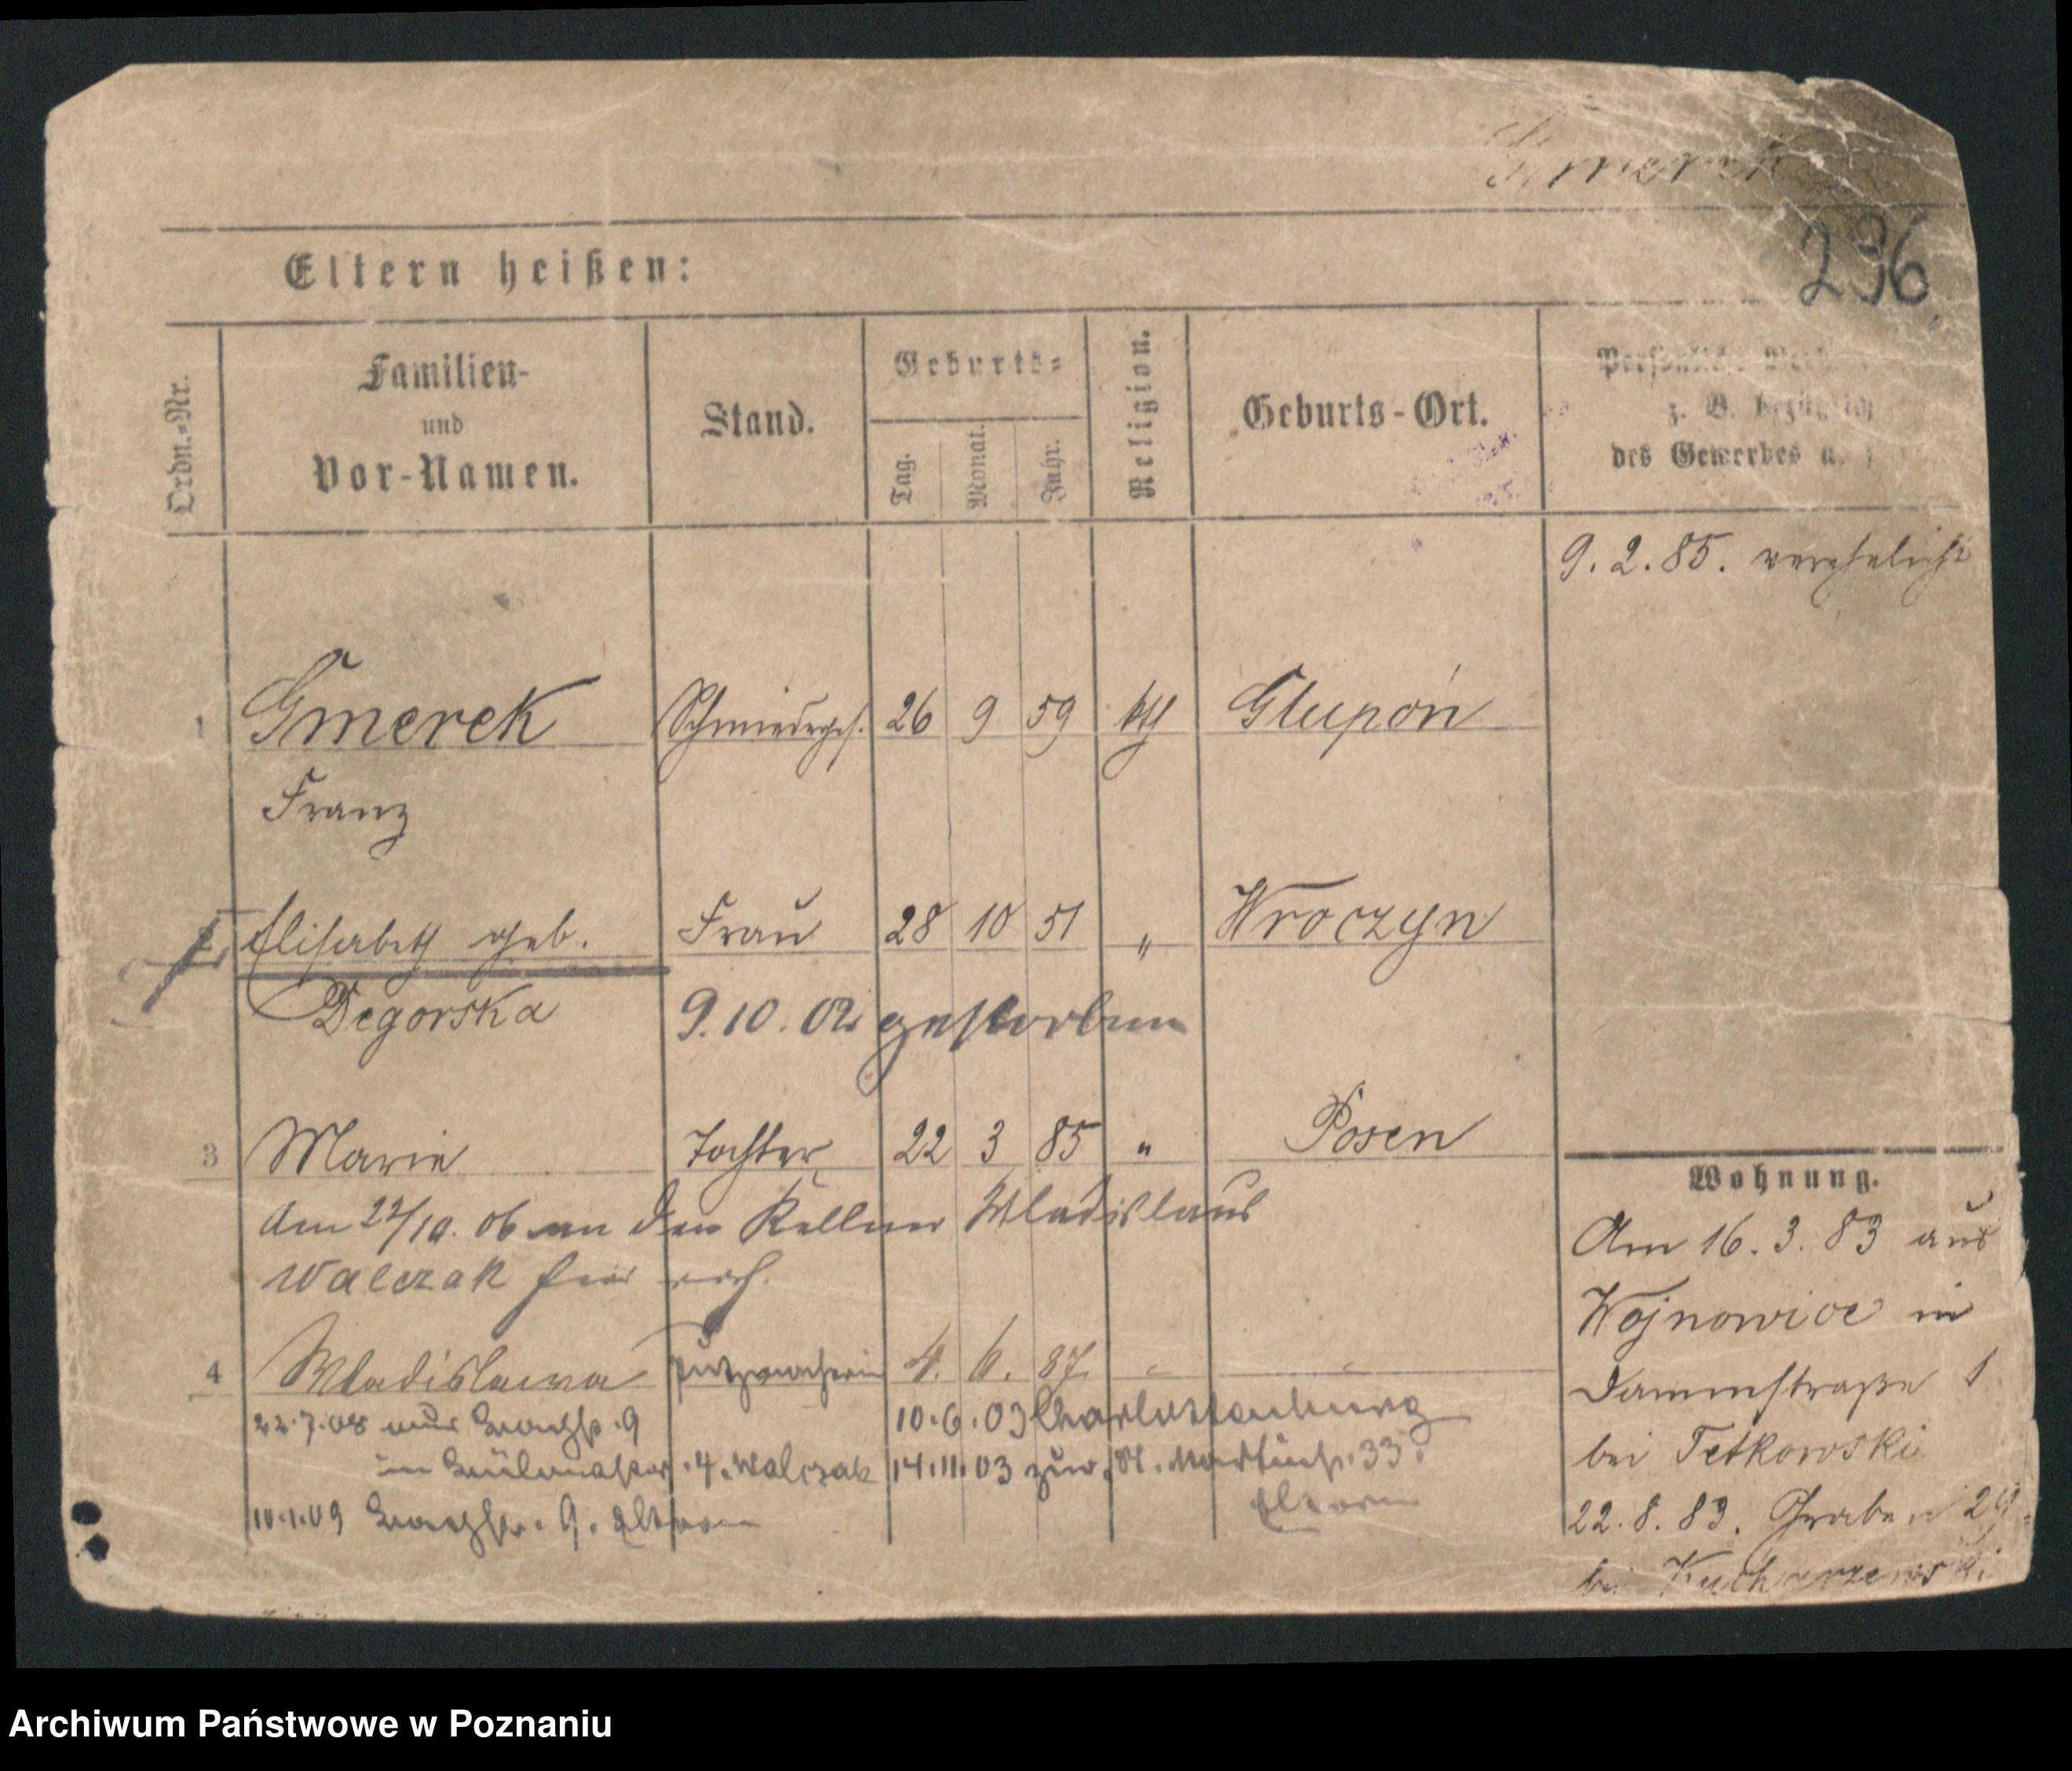 Gmerek
296
Eltern heißen:
Ordn.-Nr.
Familien- und Vor-Namen.
Stand.
Geburts-
Tag.
Monat.
Jahr.
Religion.
Geburts-Ort.
Persönliche
z. B. bezüglich
des Gewerbes u.
9. 2. 85. verehelicht
1 Gmerek Schmiedeges. 26 9 59 kth Glupoń
Franz
2 Elisabeth geb. Frau 28 10 51 " Wroczyn
Degorska 9. 10. 02 gestorben
3 Marie Tochter 22 3 85 " Posen
Am 22/10. 06 an den Kellner Wladislaus
Walczak hier verh.
4 Wladislawa Putzmacherin 4. 6. 87. " "
22.7.08 aus 9 10.6.03 Charlottenburg
4. Walczak 14.11.03 zur. St. Martinstr. 33.
Eltern
10.1.09 9. Eltern
Wohnung.
Am 16. 3. 83 aus
Wojnowice in
Dammstraße 1
bei Tetkowski
22. 8. 83. Graben 29
bei Kucharzewski
Archiwum Państwowe w Poznaniu